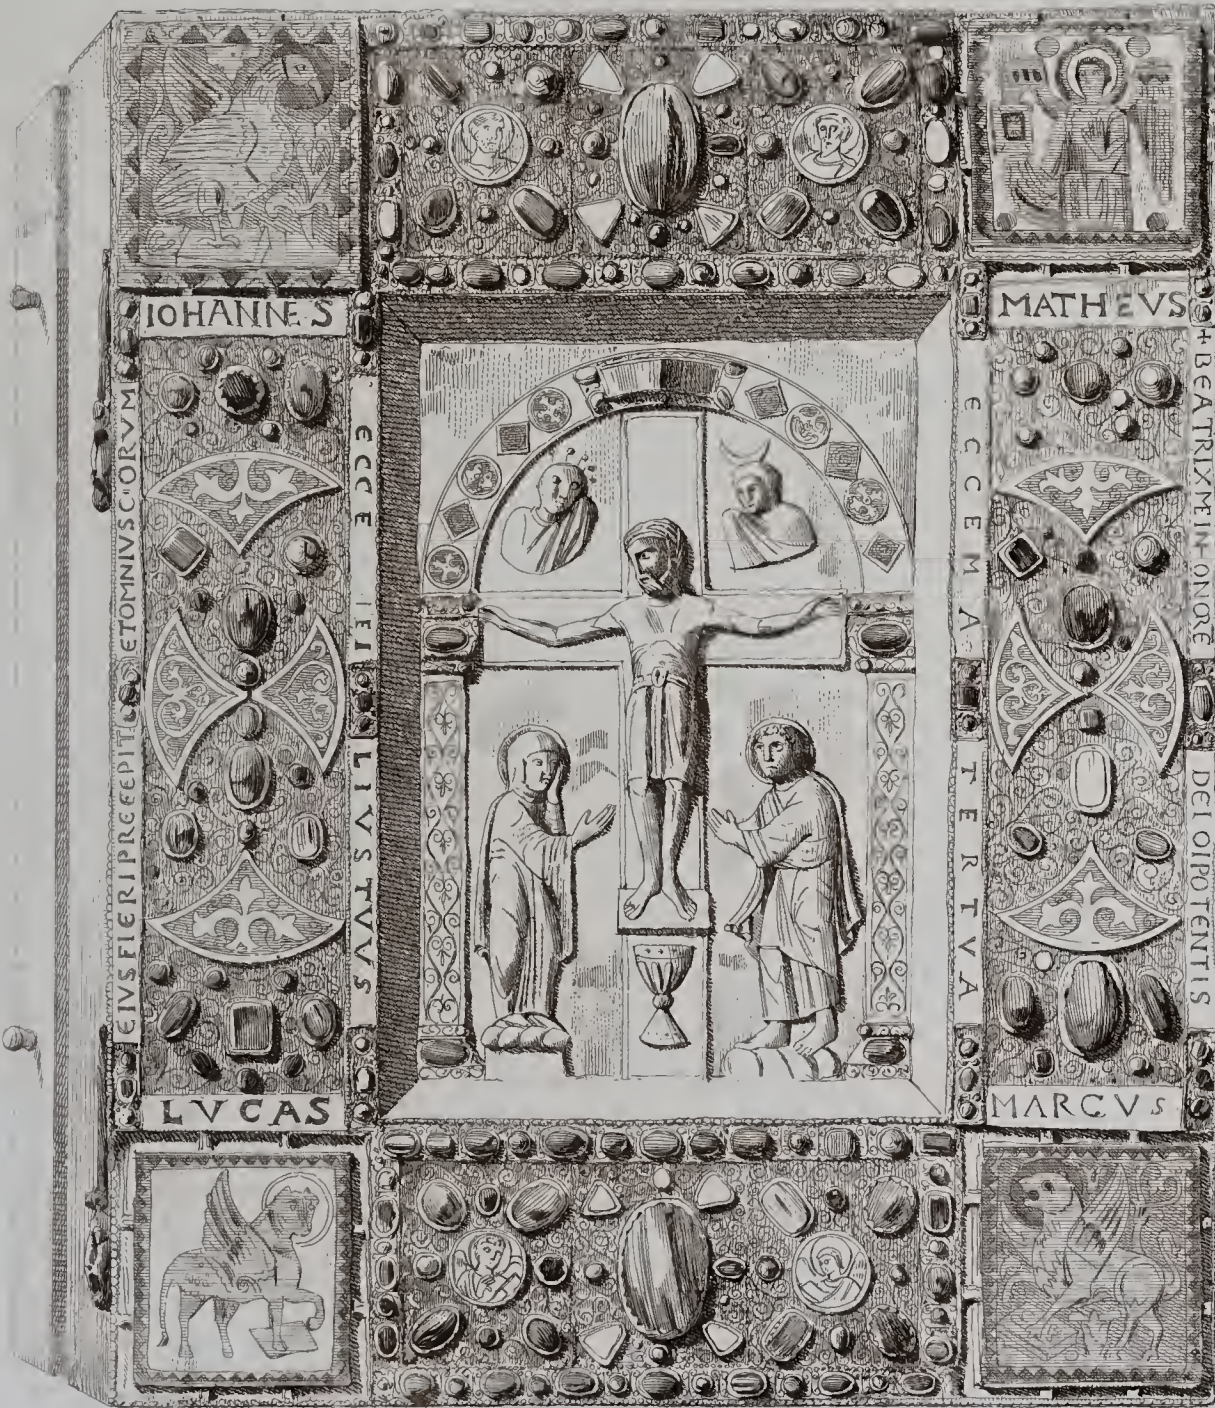 IOHANNES
MATHEVS
+ BEATRIX ME IN HONORE
DEI OIPOTENTIS
ET OMNIVS CIORVM
EIVS FIERI PRECEPIT
ECCE
LIVS TVVS
ECCE MA
TER TVA
LVCAS
MARCVS